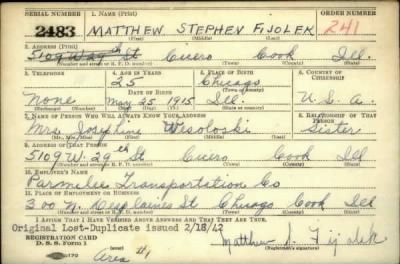 SERIAL NUMBER 1. NAME (Print) ORDER NUMBER
2483 MATTHEW STEPHEN FIJOLEK 241
(First) (Middle) (Last)
2. ADDRESS (Print)
5109 W 29th St Cicero Cook Ill.
(Number and street or R. F. D. number) (Town) (County) (State)
3. TELEPHONE 4. AGE IN YEARS 5. PLACE OF BIRTH 6. COUNTRY OF CITIZENSHIP
25 Chicago
DATE OF BIRTH
None May 25 1915 Ill. U.S.A.
7. NAME OF PERSON WHO WILL ALWAYS KNOW YOUR ADDRESS 8. RELATIONSHIP OF THAT PERSON
Mrs. Josephine Wesoloski Sister
(Mr., Mrs., Miss) (First) (Middle) (Last)
9. ADDRESS OF THAT PERSON
5109 W. 29th St Cicero Cook Ill
(Number and street or R. F. D. number) (Town) (County) (State)
10. EMPLOYER'S NAME
Parmelee Transportation Co
11. PLACE OF EMPLOYMENT OR BUSINESS
300 N. Chicago Cook Ill
(Number and street or R. F. D. number) (Town) (County) (State)
I AFFIRM THAT I HAVE VERIFIED ABOVE ANSWERS AND THAT THEY ARE TRUE.
Original Lost-Duplicate issued 2/18/42
REGISTRATION CARD
D. S. S. Form 1
Matthew S. Fijolek
(Registrant's signature)
Area #1